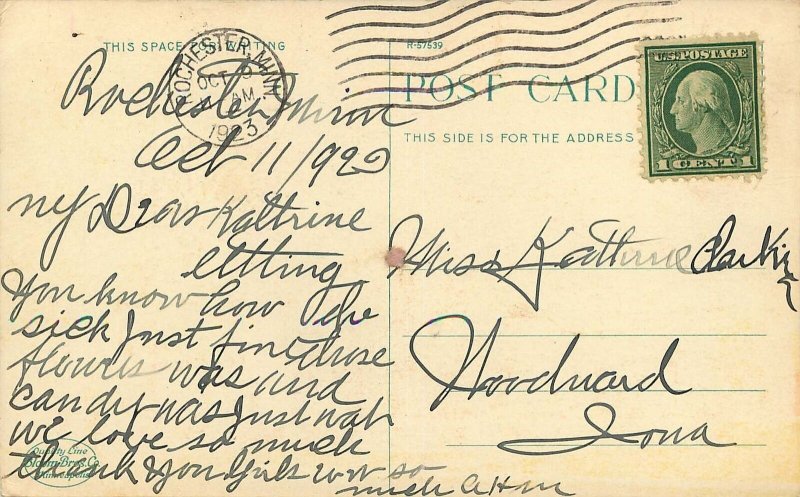 THIS SPACE FOR WRITING
R-57539
ROCHESTER, MINN.
OCT
AM
1923
U.S. POSTAGE
1 CENT 1
POST CARD
THIS SIDE IS FOR THE ADDRESS
Rochester Minn
Oct 11/92
my Dear Kattrine
You know how the
sick Just fine those
flowers was and
candy was Just wah
we love so much
thank you Girls so
much
Miss Kathrine Clark
Woodward
Iowa
Quality Line
Bloom Bros. Co.
Minneapolis